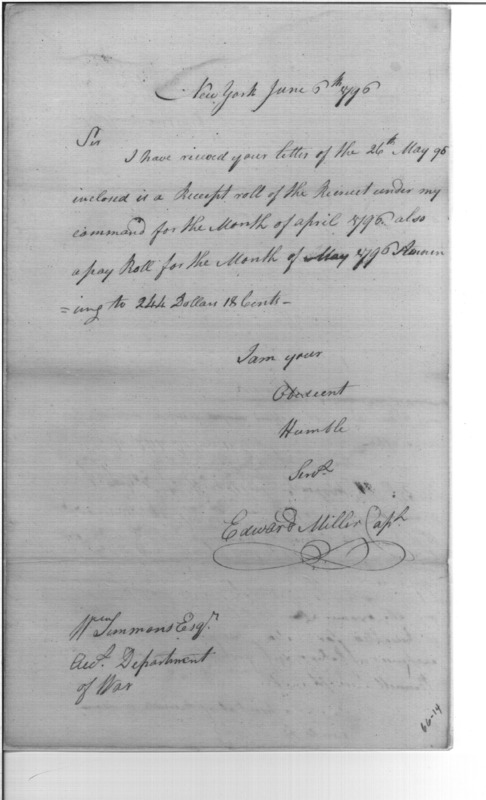 New York June 6th 1796
Sir
I have receved your letter of the 26th May 96
inclosed is a Receipt roll of the under my
command for the Month of april 1796 also
a pay Roll for the Month of May 1796 Amoun
=ing to 244 Dollars 18 Cents -
I am your
Obedient
Humble
Servt
Edward Miller Capt
Wm Simmons Esqr.
Acct. Department
of War
66-14